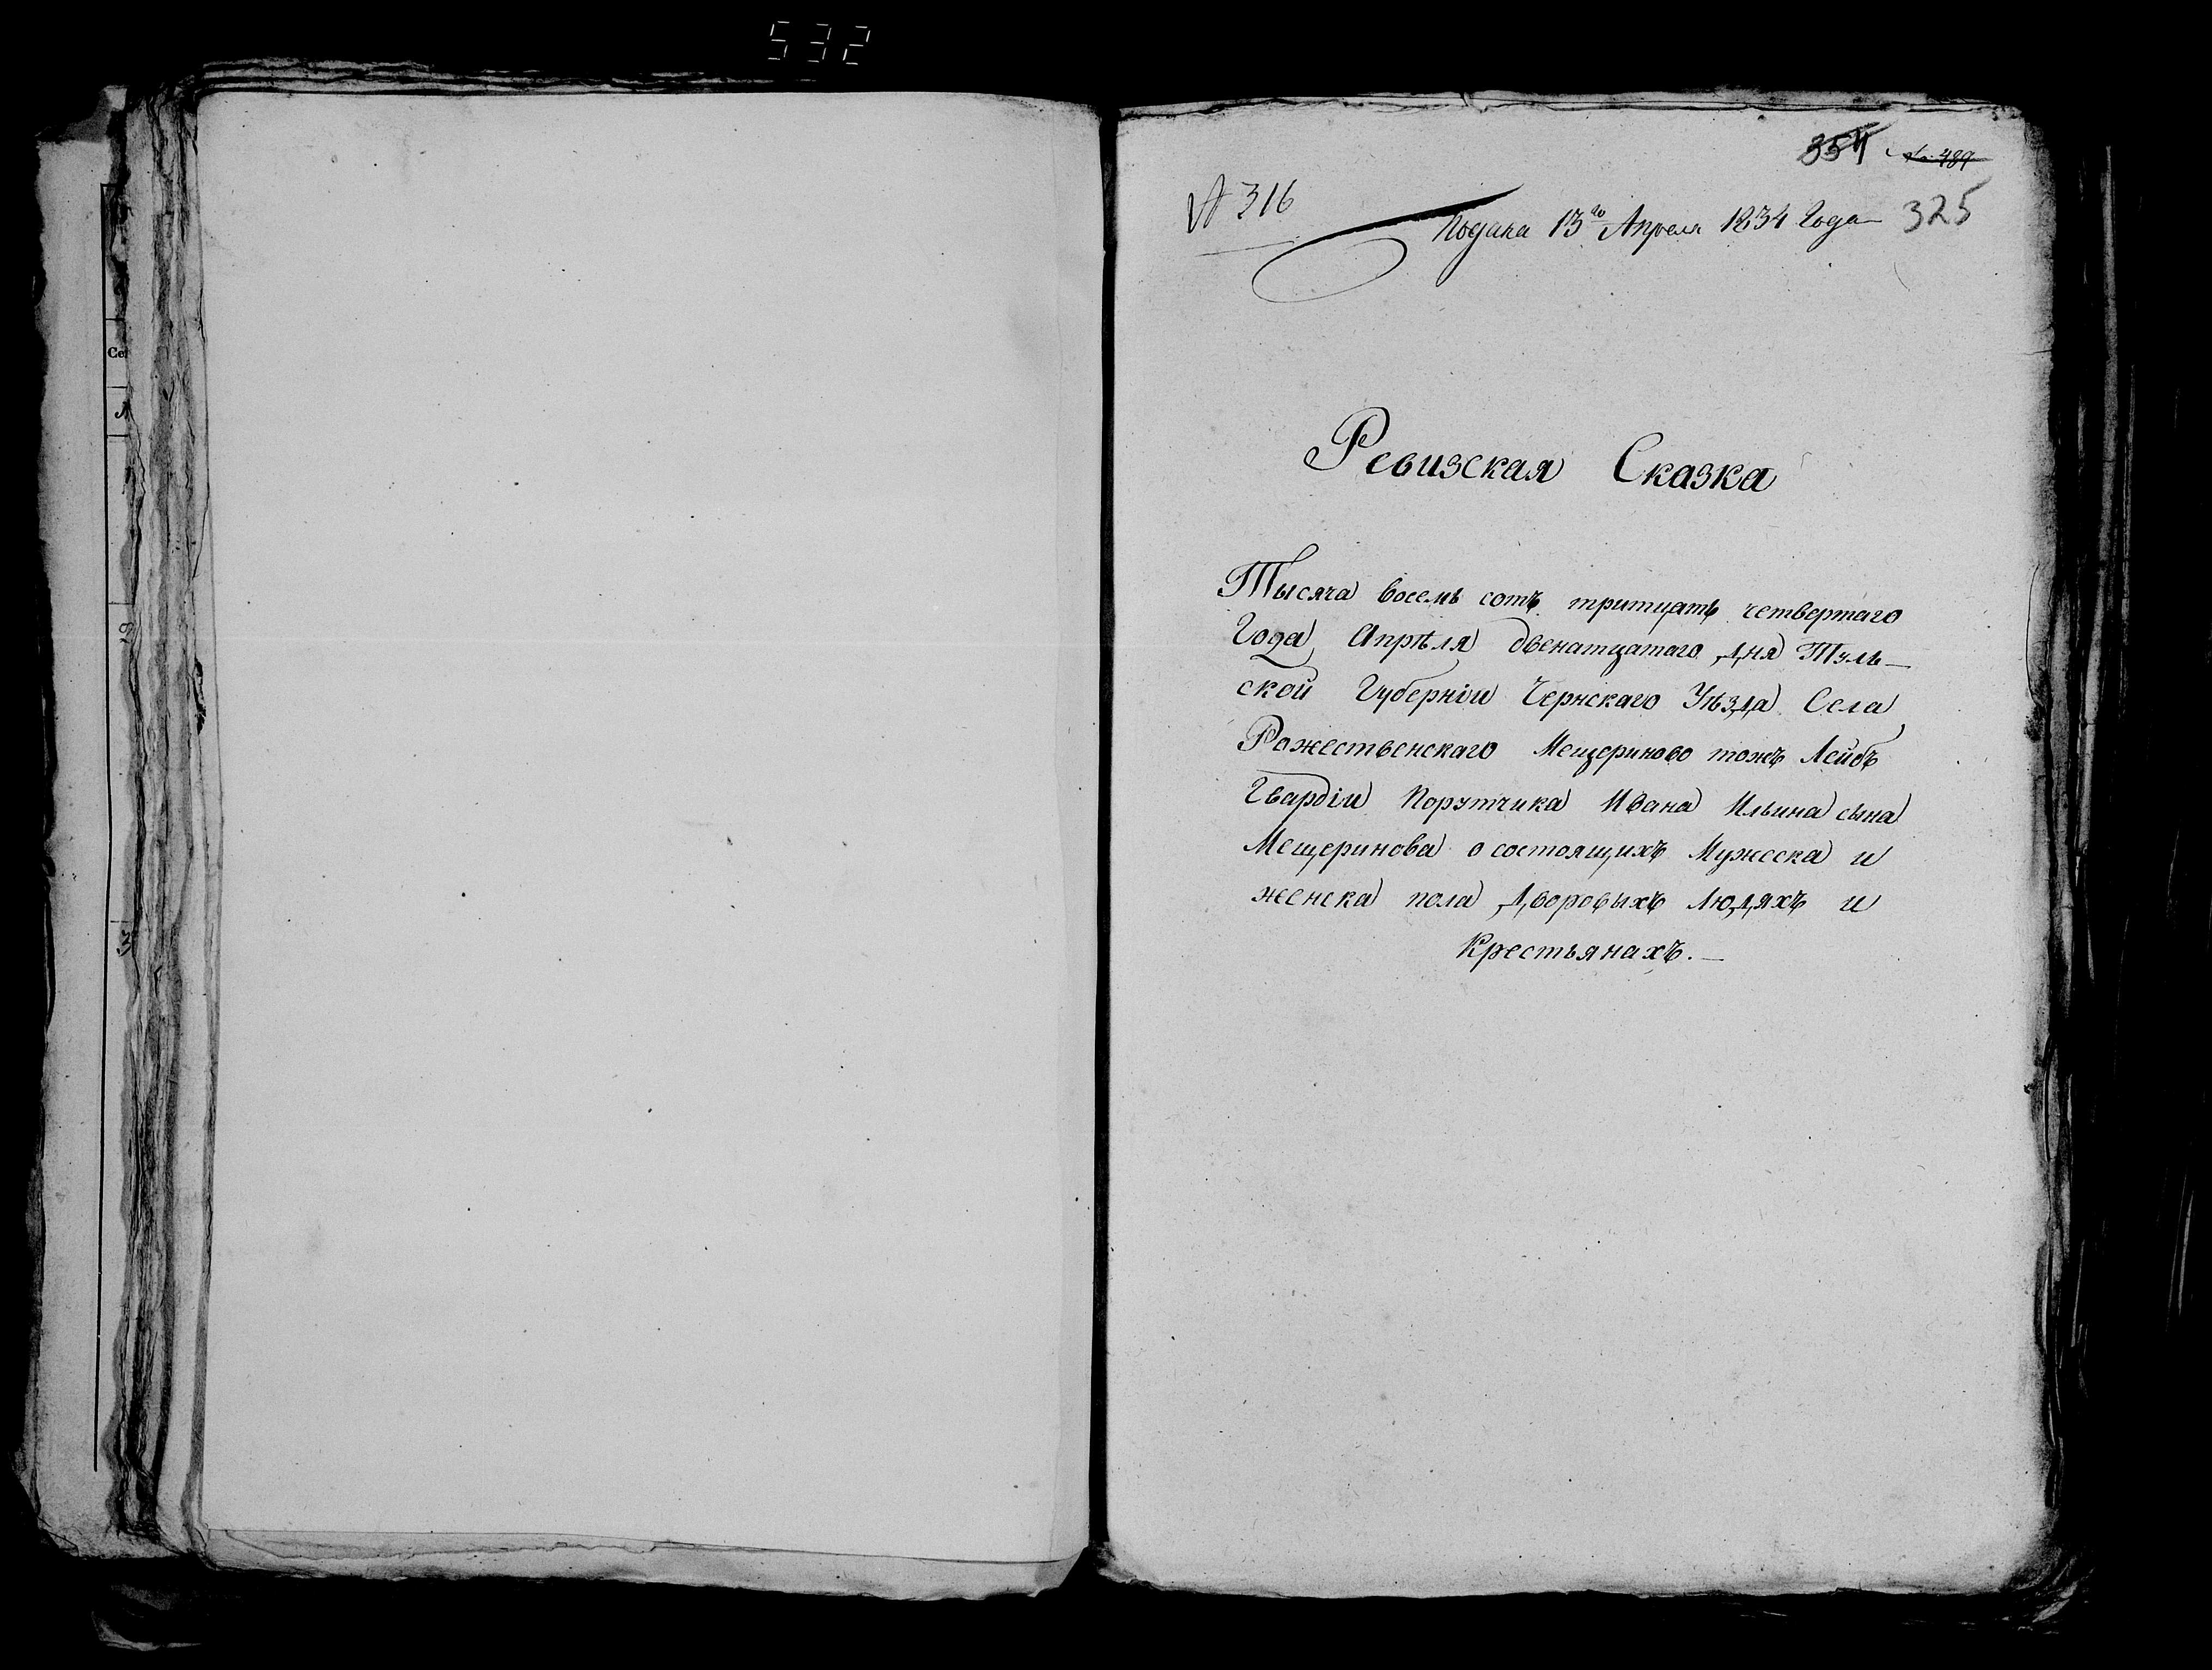 532
354 № 489
№ 316
Подана 13го Апреля 1834 Года 325
Ревизская Сказка
Тысяча восемь сотъ тритцать четвертаго
Года Апрѣля двенатцатаго дня Туль-
ской Губерніи Чернскаго Уѣзда Села
Рожественскаго Мещериново тожъ Лейбъ
Гвардіи Порутчика Ивана Ильина сына
Мещеринова о состоящихъ Мужеска и
женска пола дворовыхъ людяхъ и
Крестьянахъ.-